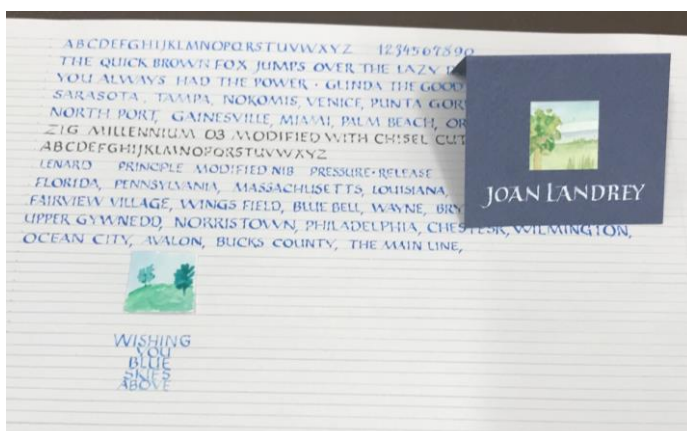 ABCDEFGHIJKLMNOPQRSTUVWXYZ 1234567890
THE QUICK BROWN FOX JUMPS OVER THE LAZY D
YOU ALWAYS HAD THE POWER · GLINDA THE GOOD
SARASOTA, TAMPA, NOKOMIS, VENICE, PUNTA GOR
NORTH PORT, GAINESVILLE, MIAMI, PALM BEACH, OR
ZIG MILLENNIUM 03 MODIFIED WITH CHISEL CUT
ABCDEFGHIJKLMNOPQRSTUVWXYZ
LENARD PRINCIPLE MODIFIED NIB PRESSURE·RELEASE
FLORIDA, PENNSYLVANIA, MASSACHUSETTS, LOUISIANA,
FAIRVIEW VILLAGE, WINGS FIELD, BLUE BELL, WAYNE, BRY
UPPER GYWNEDD, NORRISTOWN, PHILADELPHIA, WILMINGTON,
OCEAN CITY, AVALON, BUCKS COUNTY, THE MAIN LINE,
JOAN LANDREY
WISHING
YOU
BLUE
SKIES
ABOVE